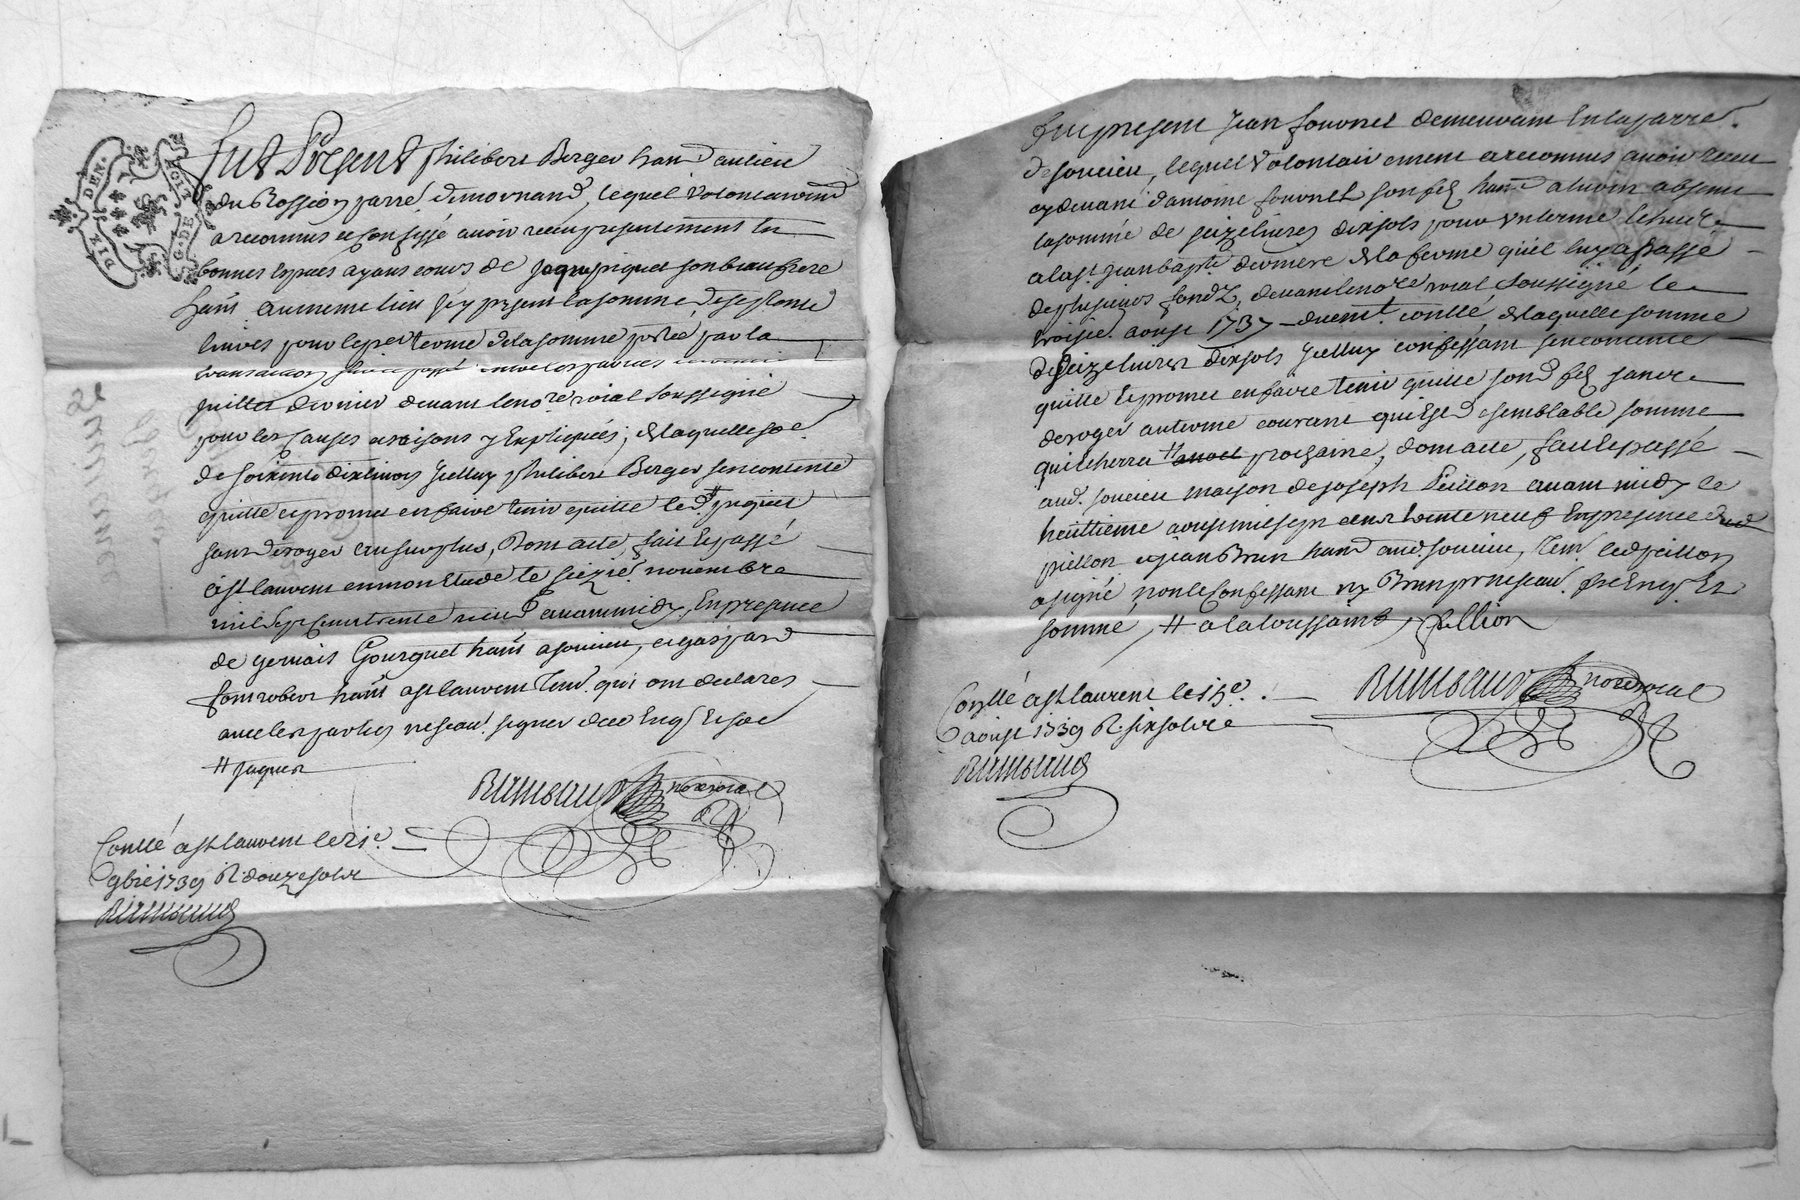 DIX DEN.
G. DE
Fut Présent philibert Berger hant au lieu
du Rossion parre. de mornand, lequel volontairemt
a reconnus et confessé avoir receu presentement en
bonnes especes ayans cours de piquet son beau frere
hant au meme lieu icy present la somme de septante
livres pour le per terme de la somme portée par la
transaction passé entre les parties
juillet dernier devant le nore roial soussigné
pour les causes et raisons y expliquées, de laquelle soe
de soixante dix livres icelluy philibert Berger sen contente
quitte et promet en faire tenir quitte led. # piquet
sans deroger au surplus, Dont acte, fait et passé
a st laurent en mon etude le seizie. novembre
mil sept cent trente neuf avant midy, En presence
de gervais Gourguet hant a soucieu, et gaspard
fontrobert hant a st laurent tem. qui ont declarés
avec les parties ne scau. signer de ce enq. et soe
# jaques
Rimbaud nore roial
Conllé a st laurent le 21e.
9bre 1739 R. douze sols
Rimbaud
Fut present jean fournel demeurant en la parre.
de soucieu, lequel volontairement a reconnus avoir receu
cy devant d'antoine fournel son fils hant a luoin absent
la somme de seize livres dix sols pour un terme
a la st jean baptte derniere de la ferme qu'il luy a passé
de plusieurs fonds, devant le nore roial soussigné le
troisie. aoust 1737 duemt. conllé, de laquelle somme
de seize livres dix sols icelluy confessant sen contente
quitte et promet en faire tenir quitte sond. fils sans
deroger au terme courant qui est d'semblable somme
qui echerra # prochaine, dont acte, fait et passé
aud. soucieu maison de joseph Peillon avant midy le
heuttieme aoust mil sept cent trente neuf En presence dud.
peillon et jean Brun hant aud. soucieu, tem. led. peillon
a signé, non le confessant ny Brun pr ne scau. de enq. Et
sommé, # a la toussaint, pellion
Rimbaud nore roial
Conllé a st laurent le 15e.
aoust 1739 R. six sols
Rimbaud